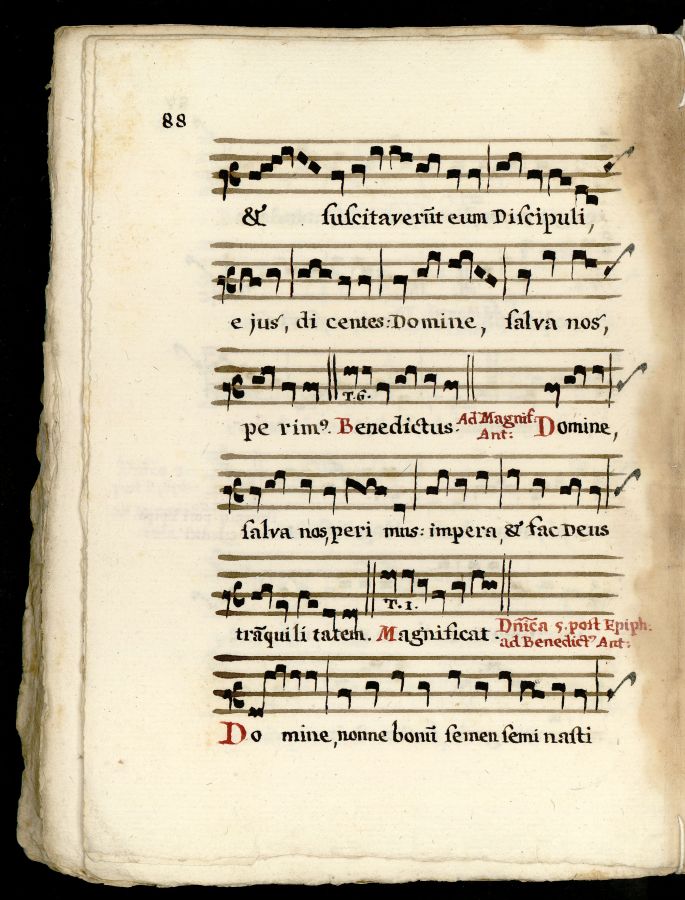 88
& ſuſcitaverūt eum Diſcipuli,
e jus, di centes: Domine, ſalva nos,
T.6.
pe rimꝰ. Benedictus. Ad Magnif. Ant: Domine,
ſalva nos, peri mus: impera, & fac Deus
T.1.
trāquili tatem. Magnificat. Dn̄ica 5. poſt Epiph: ad Benedictꝰ Ant:
Do mine, nonne bonū ſemen ſemi naſti